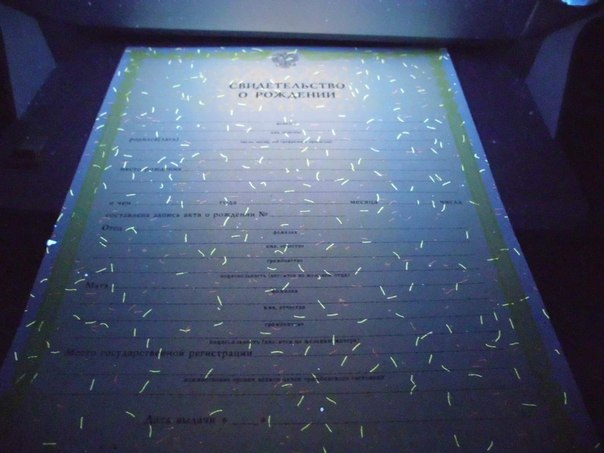 СВИДЕТЕЛЬСТВО
О РОЖДЕНИИ
фамилия
имя, отчество
родился(лась)
место рождения
о чем года месяца числа
составлена запись акта о рождении №
Отец
фамилия
имя, отчество
гражданство
национальность (вносится по желанию отца)
Мать
фамилия
имя, отчество
гражданство
национальность (вносится по желанию матери)
Место государственной регистрации
наименование органа записи актов гражданского состояния
Дата выдачи «